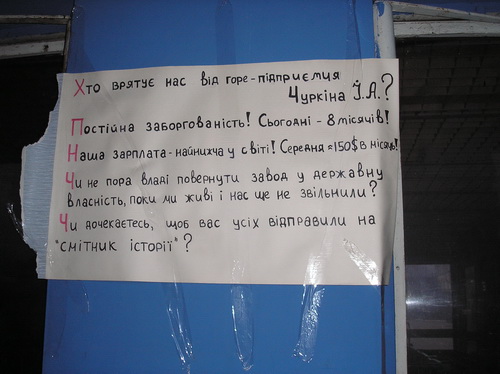 Хто врятує нас від горе-підприємця
Чуркіна І.А.?
Постійна заборгованість! Сьогодні - 8 місячів!
Наша зарплата - найнижча у світі! Середня ≈150$ в місяць!
Чи не пора владі повернути завод у державну
власність, поки ми живі і нас ще не звільнили?
Чи дочекаєтесь, щоб вас усіх відправили на
"смітник історії"?